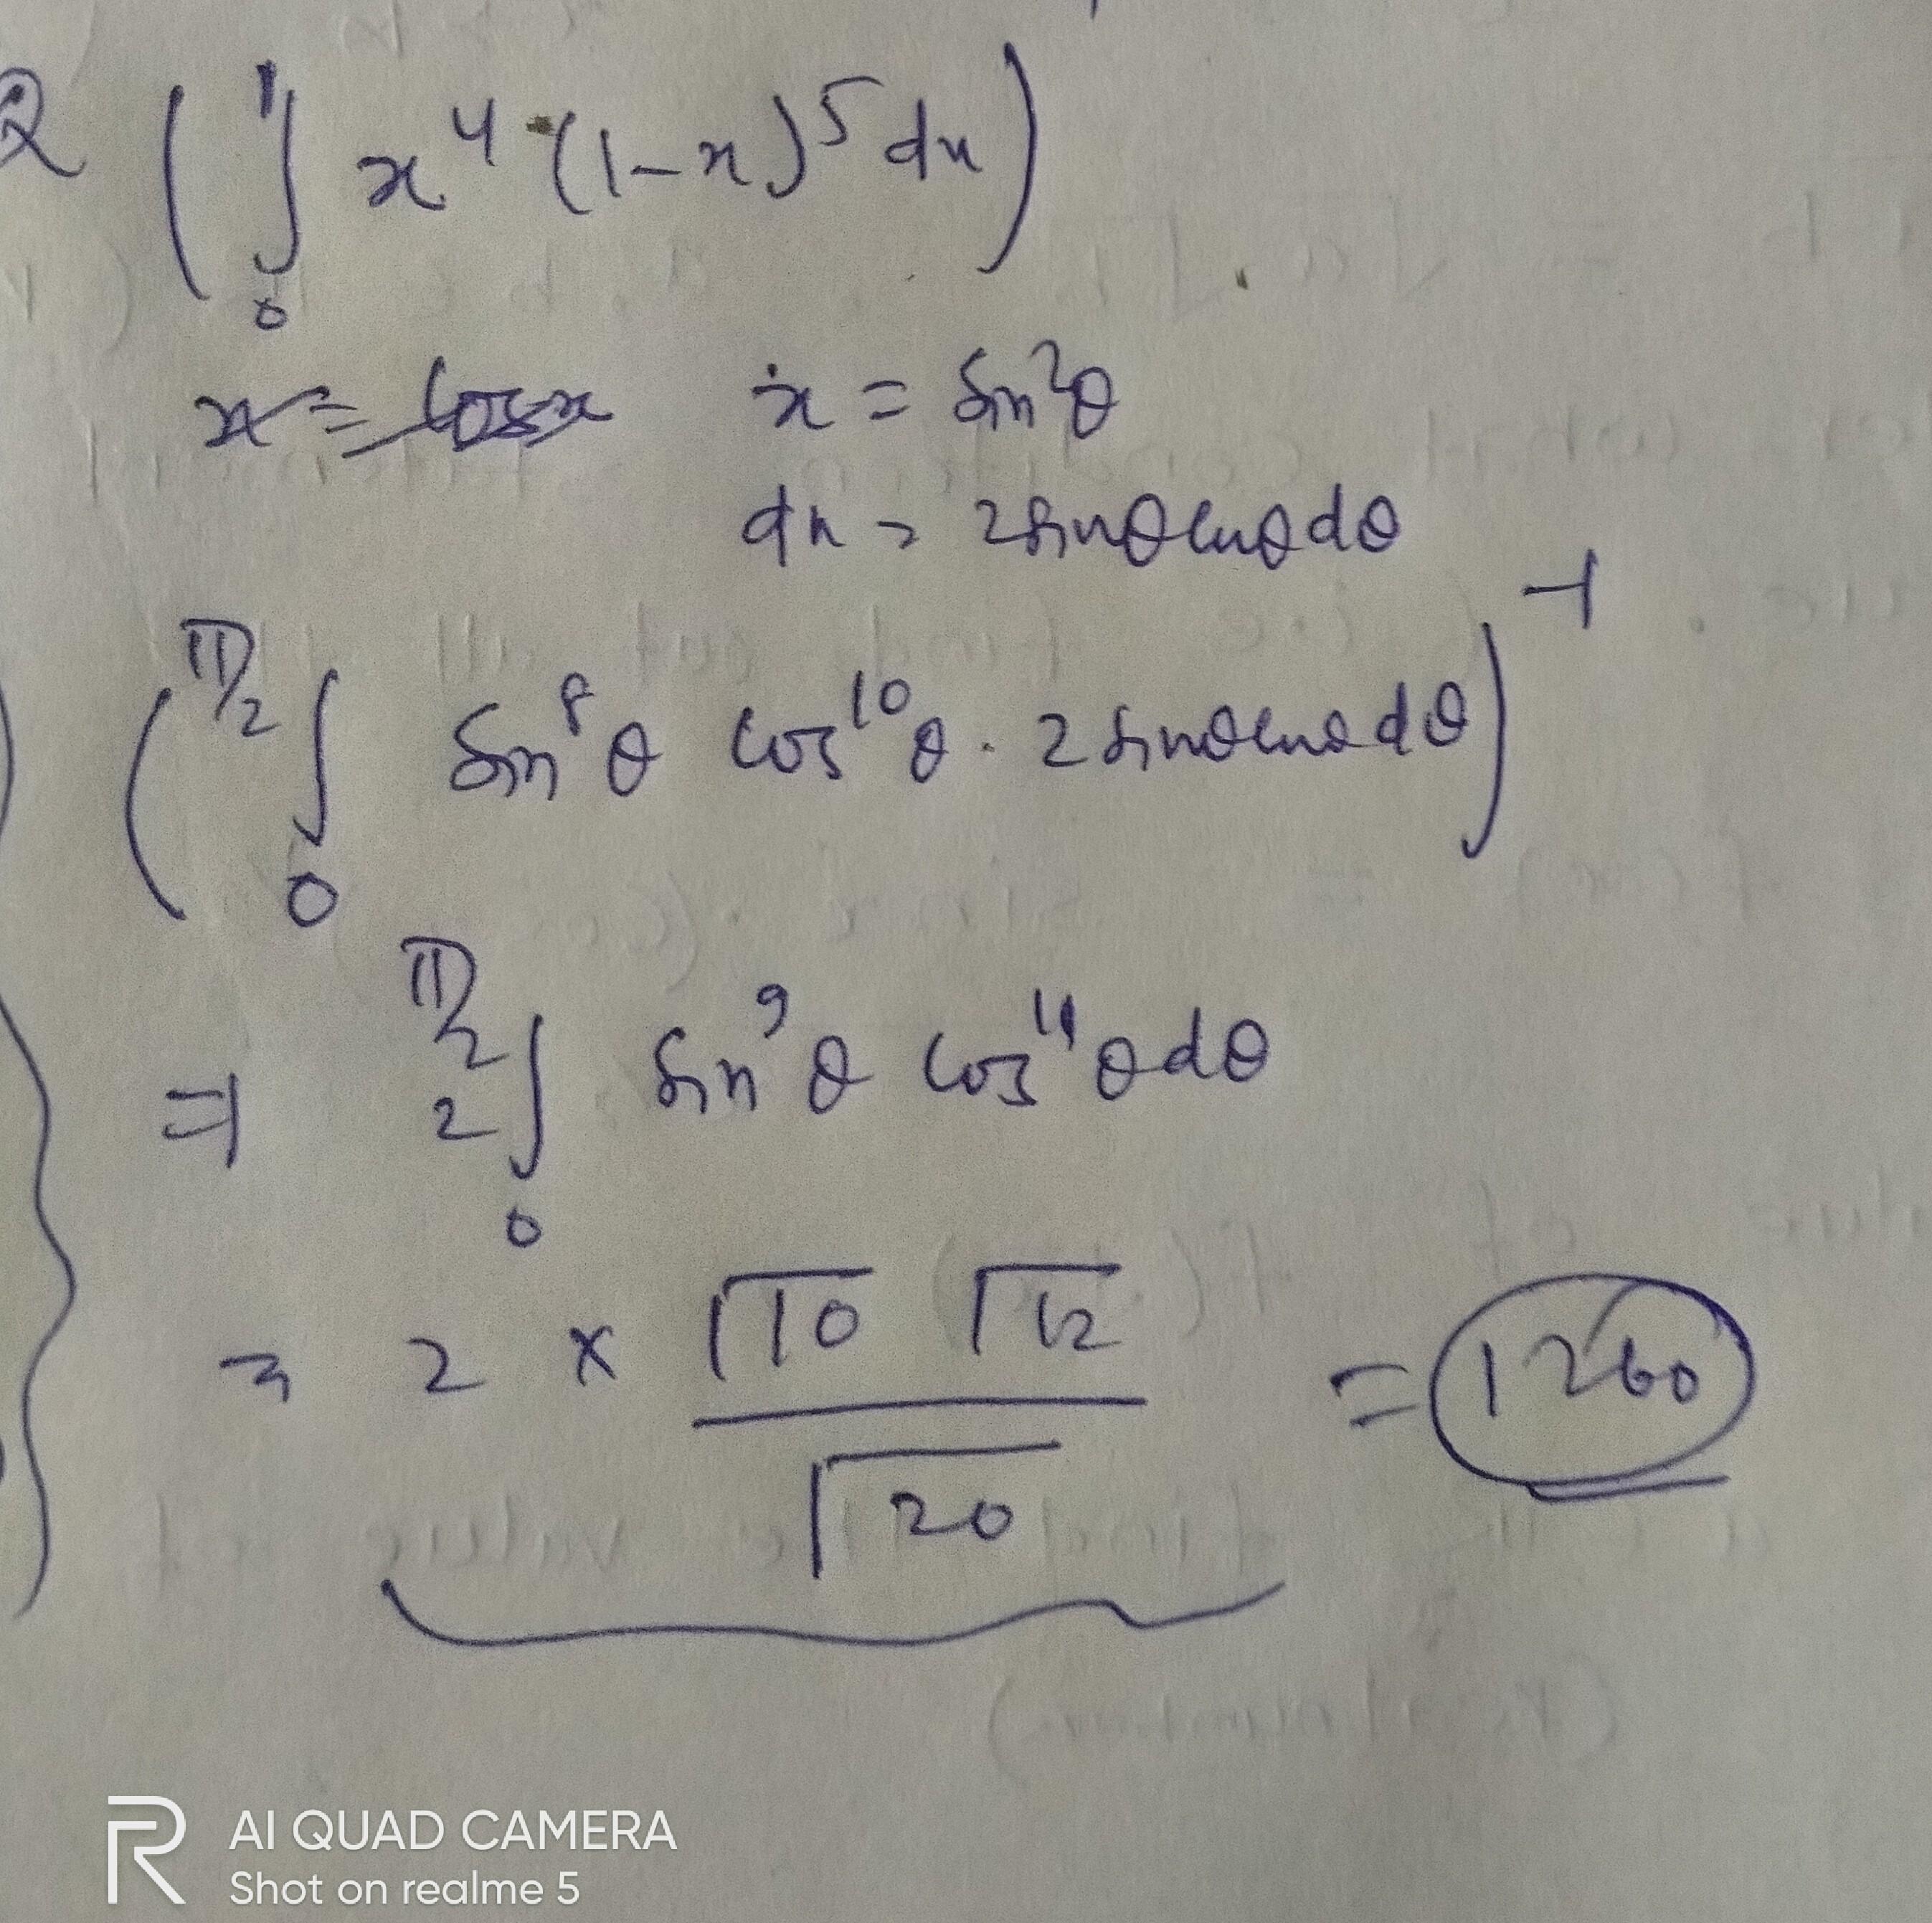 Q ( ∫₀¹ x⁴ (1-x)⁵ dx )
x = cosx x = sin²θ
dx = 2sinθcosθdθ
( ∫₀^π/2 sin⁸θ cos¹⁰θ . 2sinθcosθdθ )⁻¹
⇒ 2 ∫₀^π/2 sin⁹θ cos¹¹θdθ
= 2 × Γ10 Γ12 / Γ20 = 1260
AI QUAD CAMERA
Shot on realme 5